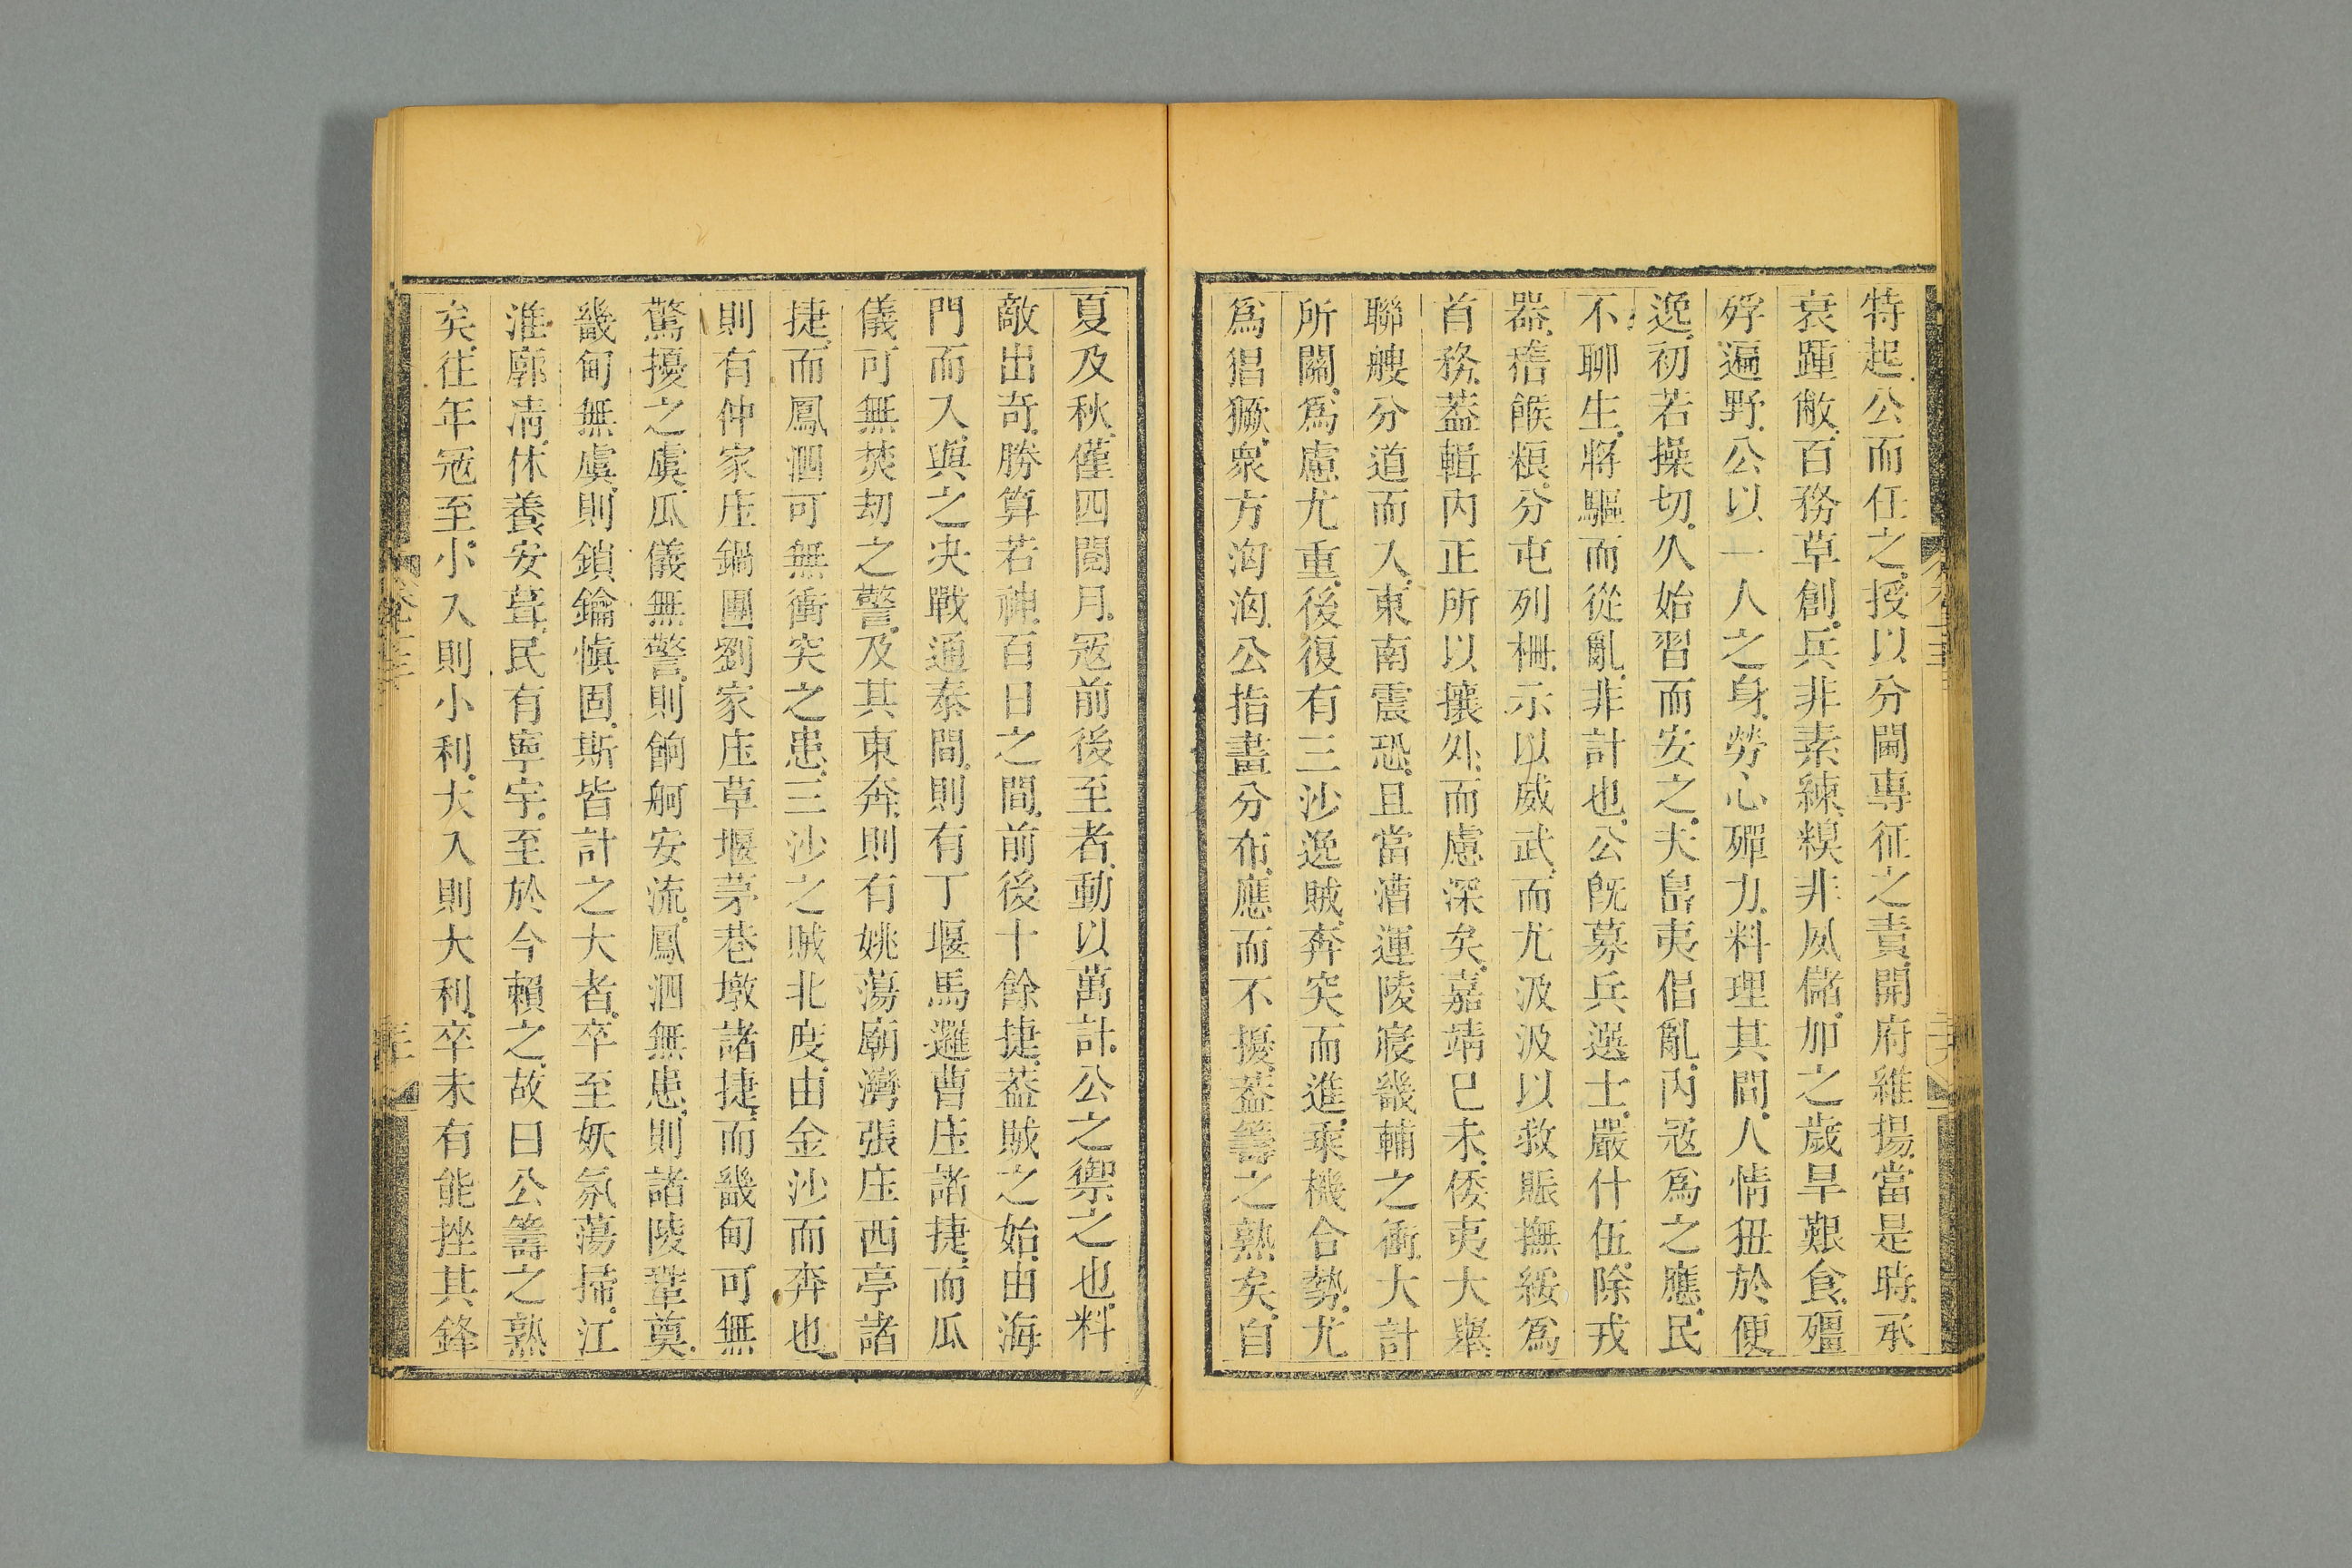 特起公而任之授以分閫專征之責開府維揚當是時承
衰踵敝百務草創兵非素練糗非夙儲加之歲旱艱食殭
殍遍野公以一人之身勞心殫力料理其間人情狃於便
逸初若操切久始習而安之夫島夷倡亂內冦爲之應民
不聊生將驅而從亂非計也公旣募兵選士嚴什伍除戎
器稽餱粮分屯列柵示以威武而尤汲汲以救賑撫綏爲
首務葢輯內正所以攘外而慮深矣嘉靖己未倭夷大舉
聯艘分道而入東南震恐且當漕運陵寢畿輔之衝大計
所關爲慮尤重後復有三沙逸賊奔突而進乘機合勢尤
爲猖獗衆方洶洶公指畫分布應而不擾葢籌之熟矣自
夏及秋僅四閱月冦前後至者動以萬計公之禦之也料
敵出奇勝算若神百日之間前後十餘捷葢賊之始由海
門而入與之决戰通泰間則有丁堰馬邏曹庄諸捷而瓜
儀可無焚刧之警及其東奔則有姚蕩廟灣張庄西亭諸
捷而鳳泗可無衝突之患三沙之賊北度由金沙而奔也
則有仲家庄鍋團劉家庄草堰茅巷墩諸捷而畿甸可無
驚擾之虞瓜儀無警則餉舸安流鳳泗無患則諸陵鞏奠
畿甸無虞則鎖鑰愼固斯皆計之大者卒至妖氛蕩掃江
淮廓淸休養安葺民有寧宇至於今賴之故曰公籌之熟
矣往年冦至小入則小利大入則大利卒未有能挫其鋒